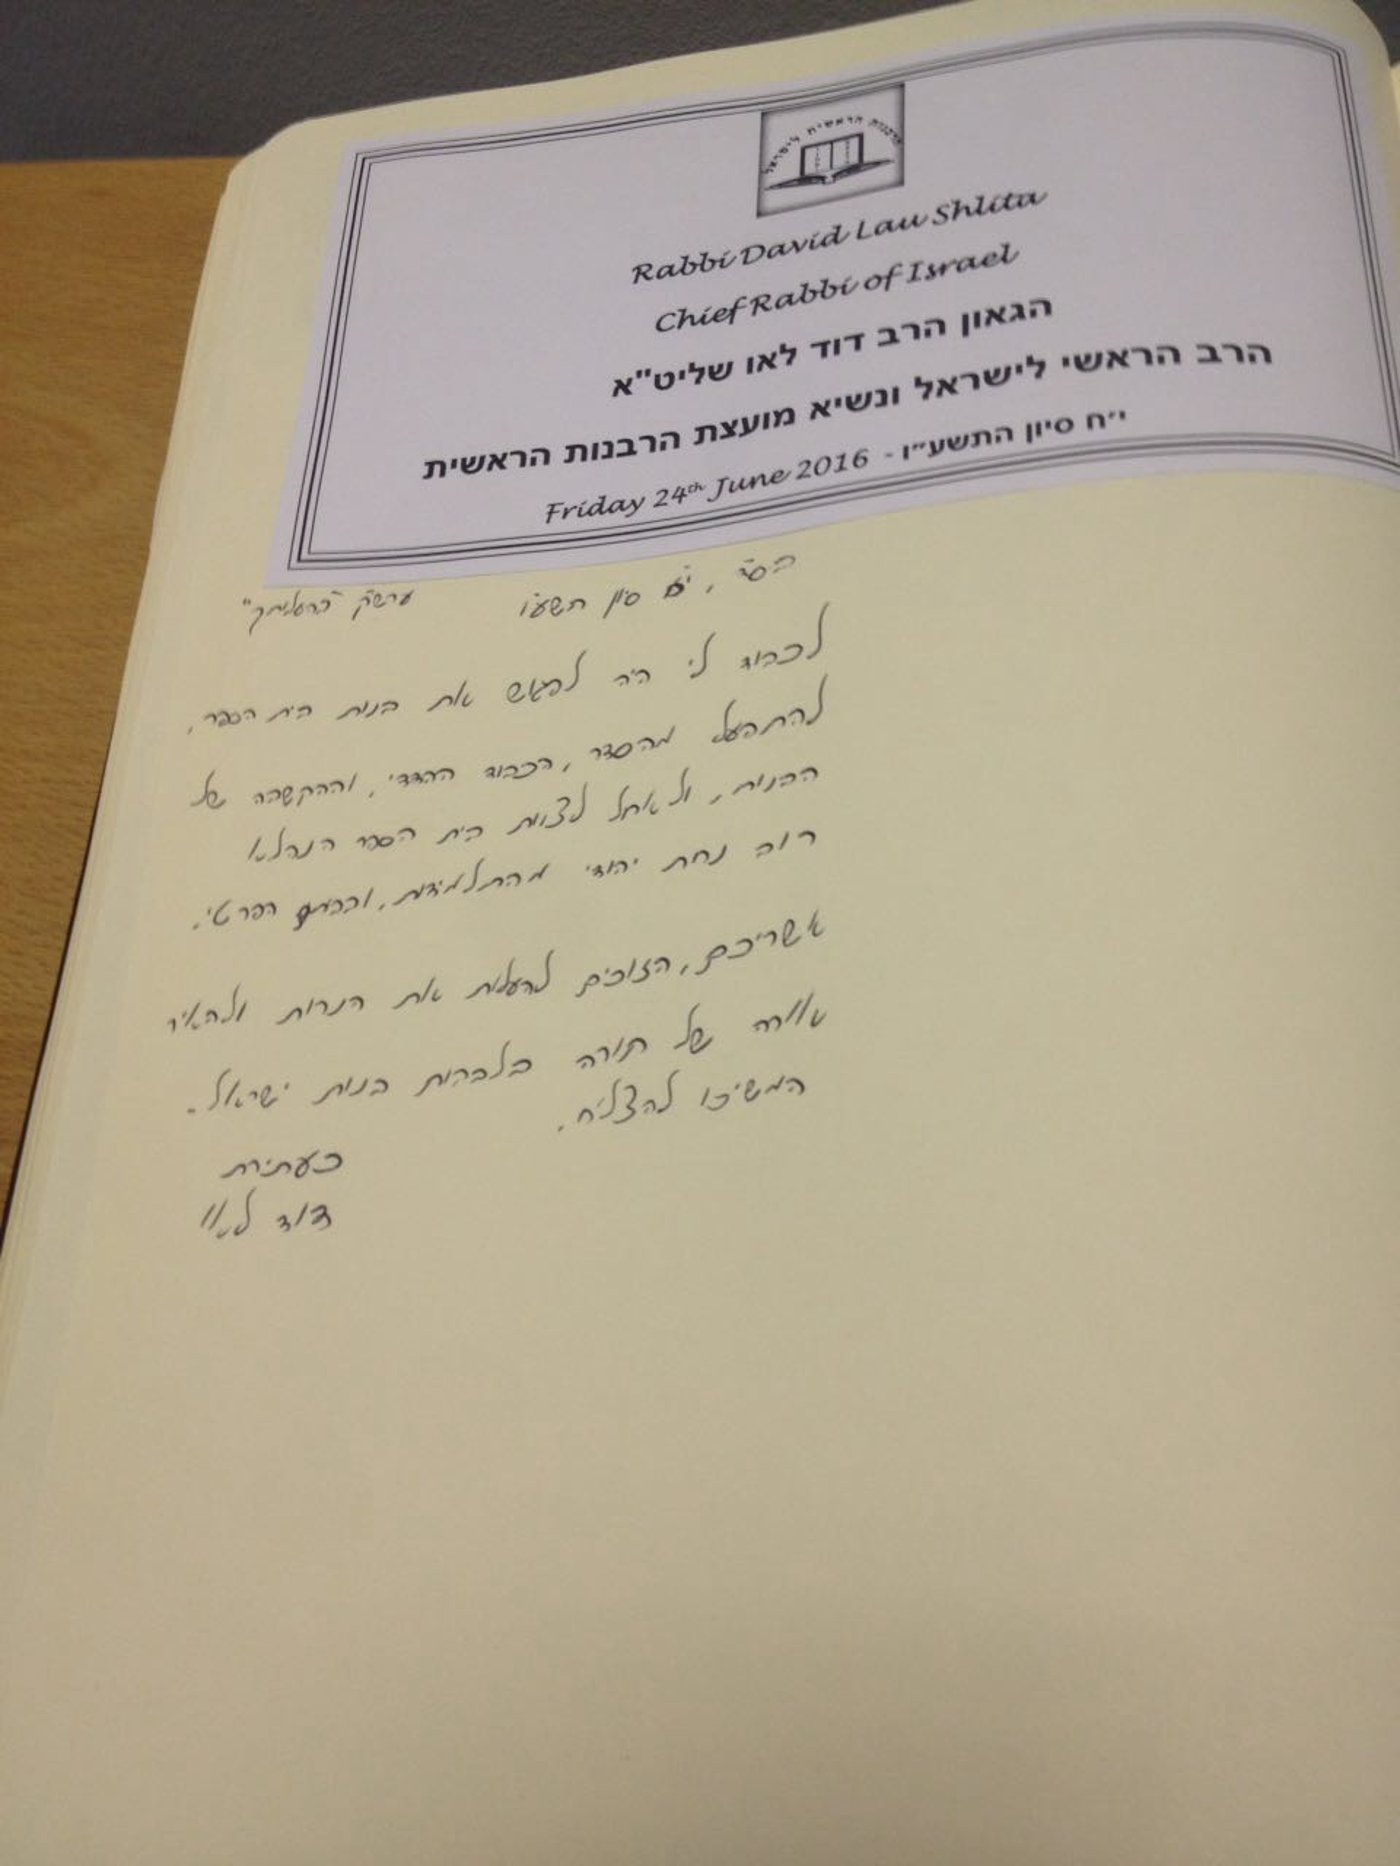 הרבנות הראשית לישראל
Rabbi David Lau Shlita
Chief Rabbi of Israel
הגאון הרב דוד לאו שליט"א
הרב הראשי לישראל ונשיא מועצת הרבנות הראשית
Friday 24th June 2016 - י״ח סיון התשע״ו
בס"ד, י"ח סיון תשע"ו ערש"ק "בהעלותך"
לכבוד לי היה לפגוש את בנות בית הספר,
להתפעל מהסדר, הכבוד ההדדי, וההקשבה של
הבנות, ולאחל לצוות בית הספר הנפלא
רוב נחת יהודי מהתלמידות, ובביתם הפרטי.
אשריכם, הזוכים להעלות את הנרות ולהאיר
אורה של תורה בלבבות בנות ישראל.
המשיכו להצליח.
בעתירה
דוד לאו